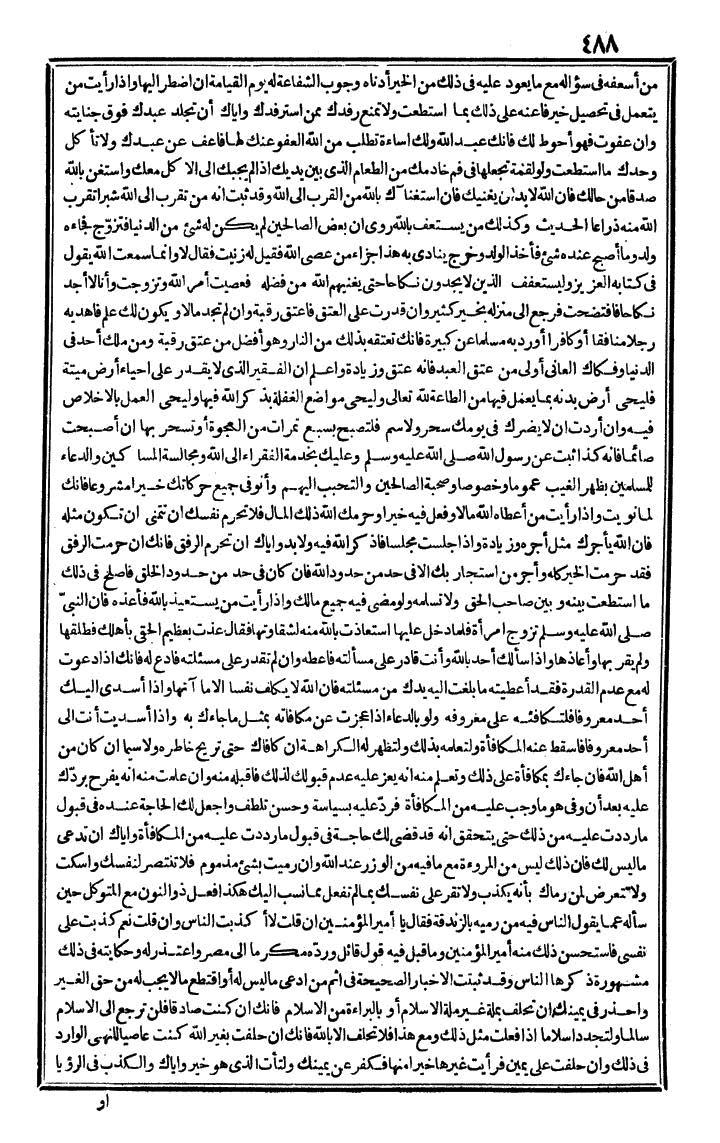 ٤٨٨
من أسعفه فى سؤاله مع ما يعود عليه فى ذلك من الخير أدناه وجوب الشفاعة له يوم القيامة ان اضطر اليها واذا رأيت من
يتعمل فى تحصيل خير فاعنه على ذلك بما استطعت ولا تمنع رفدك ممن استرفدك واياك أن تجلد عبدك فوق جنايته
وان عفوت فهو أحوط لك فانك عبد الله ولك اساءة تطلب من الله العفو عنك لها فاعف عن عبدك ولا تأكل
وحدك ما استطعت ولو لقمة تجعلها فى فم خادمك من الطعام الذى بين يديك اذا لم يجبك الى الاكل معك واستغن بالله
صدقا من حالك فان الله لا بد أن يغنيك فان استغناءك بالله من القرب الى الله وقد ثبت انه من تقرب الى الله شبرا تقرب
الله منه ذراعا الحديث وكذلك من يستعف بالله روى ان بعض الصالحين لم يكن له شئ من الدنيا فتزوّج فجاءه
ولد وما أصبح عنده شئ فأخذ الولد وخرج ينادى به هذا جزاء من عصى الله فقيل له زنيت فقال لا وانما سمعت الله يقول
فى كتابه العزيز وليستعفف الذين لا يجدون نكاحا حتى يغنيهم الله من فضله فعصيت أمر الله وتزوجت وأنا لا أجد
نكاحا فافتضحت فرجع الى منزله بخير كثير وان قدرت على العتق فاعتق رقبة وان لم تجد مالا ويكون لك علم فاهد به
رجلا منافقا أو كافرا أو رد به مسلما عن كبيرة فانك تعتقه بذلك من النار وهو أفضل من عتق رقبة ومن ملك أحد فى
الدنيا وفكاك العانى أولى من عتق العبد فانه عتق وزيادة واعلم ان الفقير الذى لا يقدر على احياء أرض ميتة
فليحى أرض بدنه بما يعمل فيها من الطاعة لله تعالى وليحى مواضع الغفلة بذكر الله فيها وليحى العمل بالاخلاص
فيه وان أردت ان لا يضرك فى يومك سحر ولا سم فلتصبح بسبع تمرات من العجوة أو تسحر بها ان أصبحت
صائما فانه كذا ثبت عن رسول الله صلى الله عليه وسلم وعليك بخدمة الفقراء الى الله ومجالسة المساكين والدعاء
للمسلمين بظهر الغيب عموما وخصوصا وصحبة الصالحين والتحبب اليهم وأنو فى جميع حركاتك خيرا مشروعا فانك
لما نويت واذا رأيت من أعطاه الله مالا وفعل فيه خيرا وحرمك الله ذلك المال فلا تحرم نفسك ان تتمنى ان تكون مثله
فان الله يأجرك مثل أجره وزيادة واذا جلست مجلسا فاذكر الله فيه ولا بد واياك ان تحرم الرفق فانك ان حرمت الرفق
فقد حرمت الخير كله وأجر من استجار بك الا فى حد من حدود الله فان كان فى حد من حدود الخلق فاصلح فى ذلك
ما استطعت بينه وبين صاحب الحق ولا تسلمه ولو مضى فيه جميع مالك واذا رأيت من يستعيذ بالله فأعذه فان النبىّ
صلى الله عليه وسلم تزوج امرأة فلما دخل عليها استعاذت بالله منه لشقاوتها فقال عذت بعظيم الحقى بأهلك فطلقها
ولم يقربها وأعاذها واذا سألك أحد بالله وأنت قادر على مسألته فاعطه وان لم تقدر على مسئلته فادع له فانك اذا دعوت
له مع عدم القدرة فقد أعطيته ما بلغت اليه يدك من مسئلته فان الله لا يكلف نفسا الا ما آتاها واذا أسدى اليك
أحد معروفا فلتكافئه على معروفه ولو بالدعاء اذا عجزت عن مكافاته بمثل ما جاءك به واذا أسديت أنت الى
أحد معروفا فاسقط عنه المكافأة ولتعلمه بذلك ولتظهر له الكراهة ان كافاك حتى تريح خاطره ولا سيما ان كان من
أهل الله فان جاءك بمكافأة على ذلك وتعلم منه انه يعز عليه عدم قبولك لذلك فاقبله منه وان علمت منه انه يفرح بردّك
عليه بعد أن وفى هو ما وجب عليه من المكافأة فردّ عليه بسياسة وحسن تلطف واجعل لك الحاجة عنده فى قبول
ما رددت عليه من ذلك حتى يتحقق انه قد قضى لك حاجة فى قبول ما رددت عليه من المكافأة واياك ان تدعى
ما ليس لك فان ذلك ليس من المروءة مع ما فيه من الوزر عند الله وان رميت بشئ مذموم فلا تنتصر لنفسك واسكت
ولا تتعرض لمن رماك بأنه يكذب ولا تقر على نفسك بما لم تفعل مما نسب اليك هكذا فعل ذو النون مع المتوكل حين
سأله عما يقول الناس فيه من رميه بالزندقة فقال يا أمير المؤمنين ان قلت لا أكذبت الناس وان قلت نعم كذبت على
نفسى فاستحسن ذلك منه أمير المؤمنين وما قبل فيه قول قائل وردّه مكرما الى مصر واعتذر له وحكايته فى ذلك
مشهورة ذكرها الناس وقد ثبتت الاخبار الصحيحة فى اثم من ادعى ما ليس له أو اقتطع ما لا يجب له من حق الغير
واحذر فى يمينك ان تحلف بملة غير ملة الاسلام أو بالبراءة من الاسلام فانك ان كنت صادقا فلن ترجع الى الاسلام
سالما ولتجدد اسلاما اذا فعلت مثل ذلك ومع هذا فلا تحلف الا بالله فانك ان حلفت بغير الله كنت عاصيا للنهى الوارد
فى ذلك وان حلفت على يمين فرأيت غيرها خيرا منها فكفر عن يمينك ولتأت الذى هو خير واياك والكذب فى الرؤيا
او